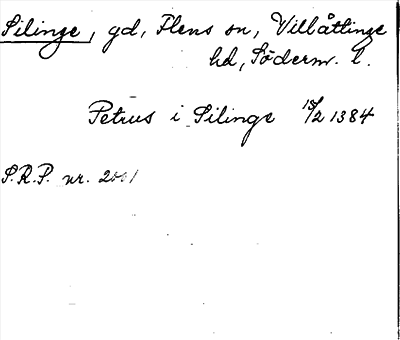 Silinge, gd, Flens sn, Villåttinge
hd, Söderm. l.
Petrus i Silinge 15/2 1384
S.R.P. nr.